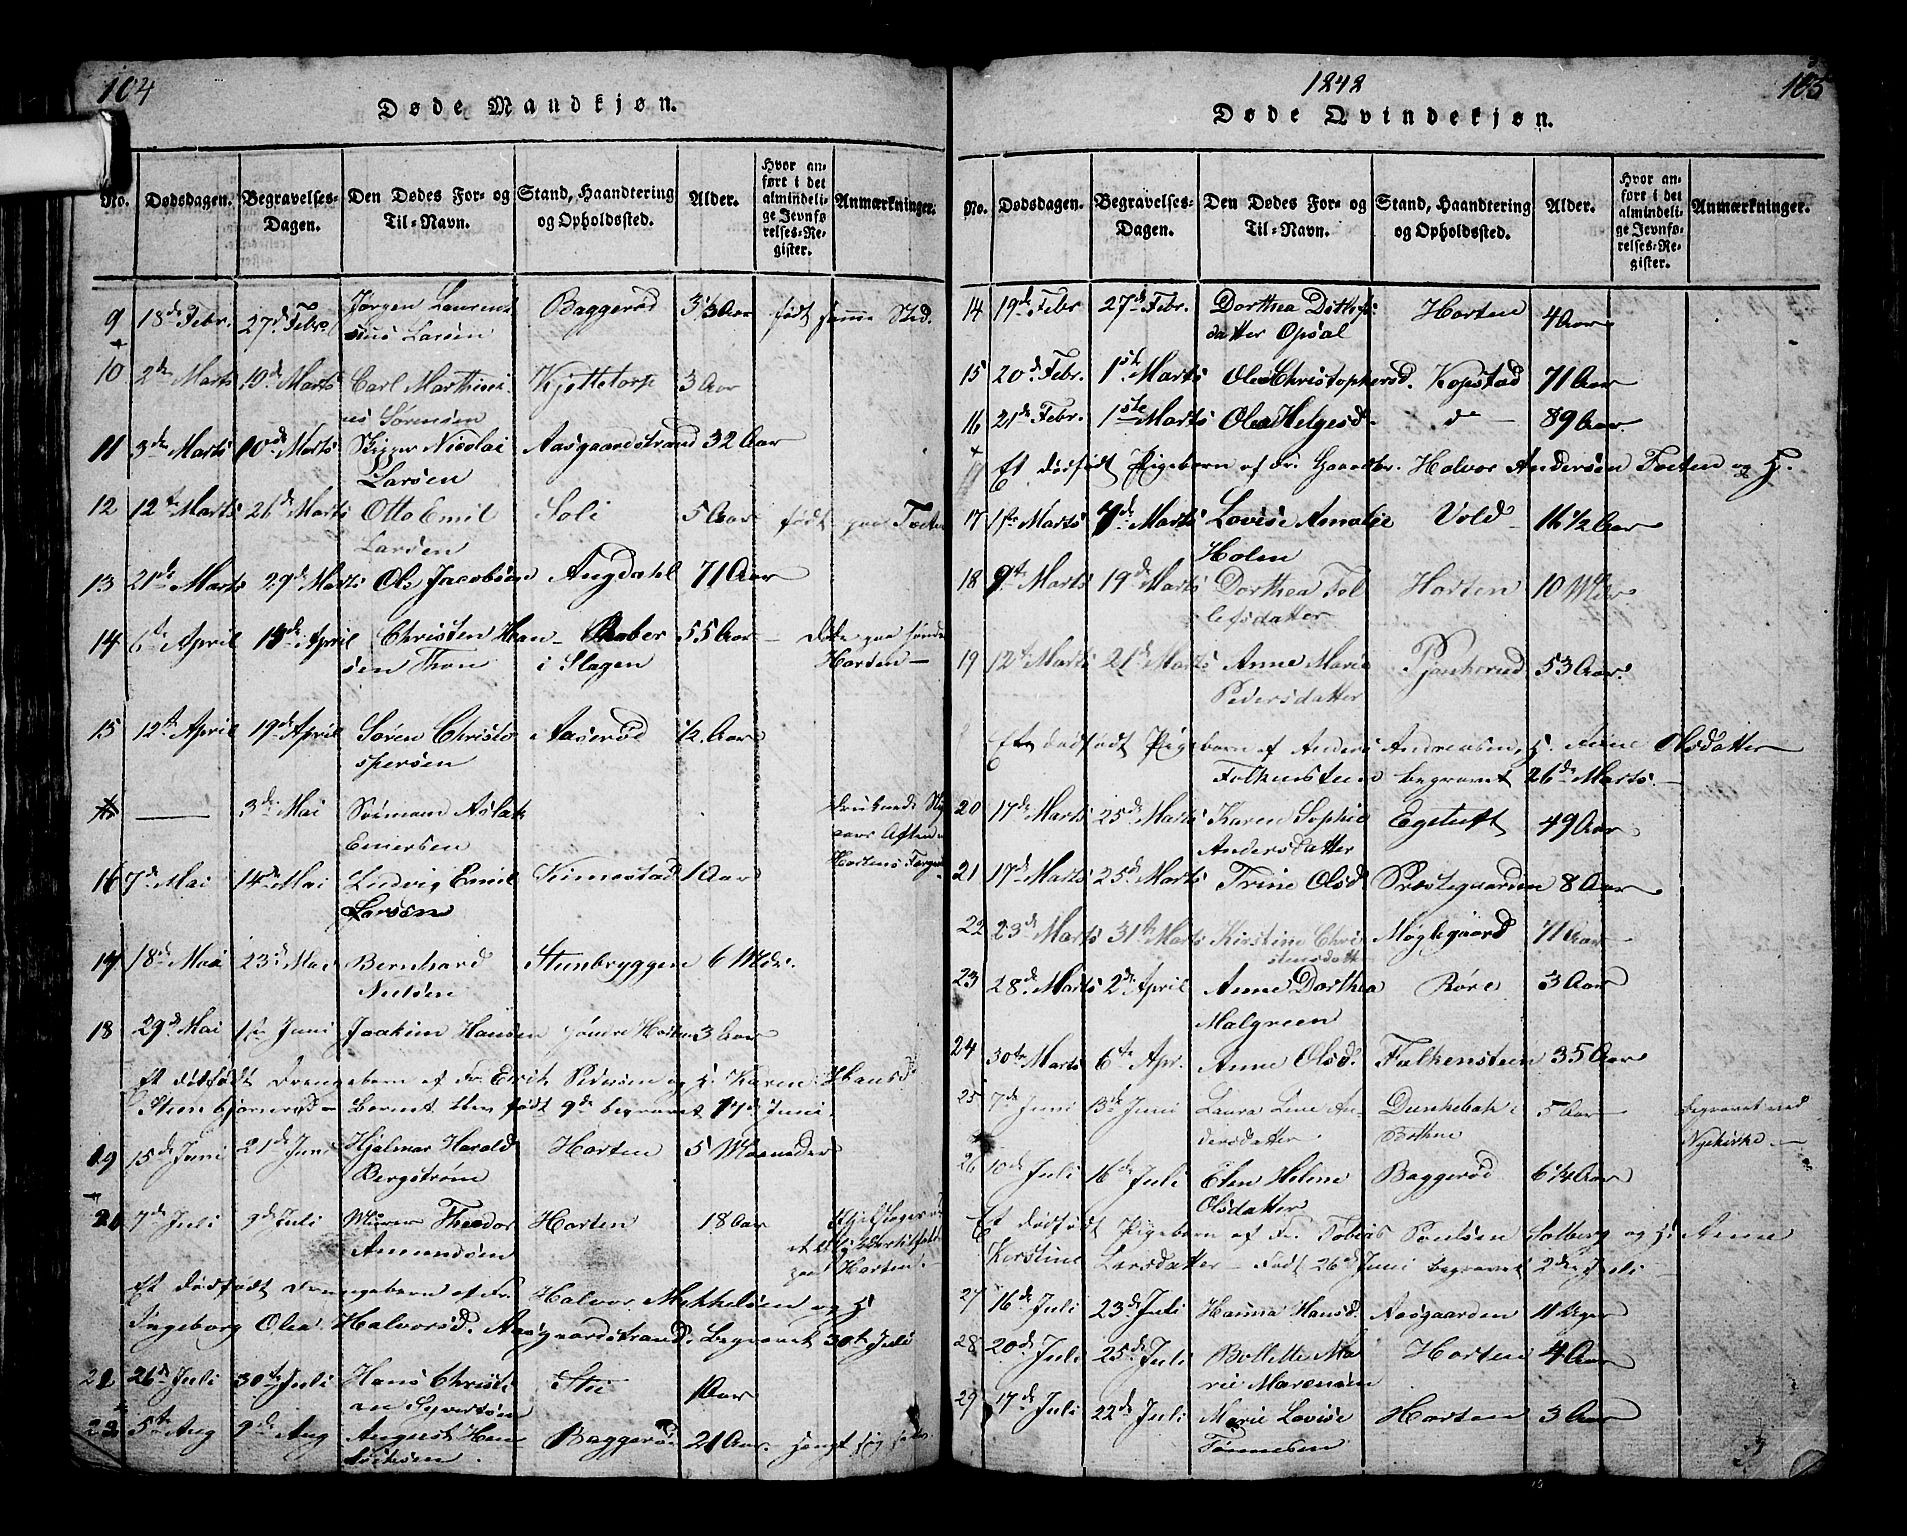 104
Døde Mandkjøn.
No. Dødsdagen. Begravelses-Dagen. Den Dødes For- og Til-Navn. Stand, Haandtering og Opholdssted. Alder. Hvor anført i det almindelige Jevnførelses-Register. Anmærkninger.
9 18de Febr. 27de Febr. Jørgen Laurentsius Larsen Baggerød 3 1/3 Aar født samme Sted.
10 2de Marts 10de Marts Carl Marthinius Sørensen Kjøttetorp 3 Aar
11 3de Marts 10de Marts Skipper Nicolai Larsen Aasgaardstrand 32 Aar
12 12te Marts 26de Marts Otto Emil Larsen Soli 5 Aar født paa Toeten
13 21de Marts 29de Marts Ole Jacobsen Augdahl 71 Aar
14 6te April 15de April Christen Hansen Thon i Slagen 55 Aar Døde paa Horten
15 12te April 19de April Søren Christophersen Aaserød 1/2 Aar
3de Mai Sømann Aslak Einersen druknede Hortens
16 7de Mai 14de Mai Ludvig Emil Larsen Kimestad 1 Aar
17 18de Mai 23de Mai Bernhard Nielsen Steenbryggen 6 Mdr.
18 29de Mai 1ste Juni Joakim Hansen Horten 3 Aar
Et dødfødt Drengebarn af Fr. Eirik Pedersen og H. Karen Hansd.
Steenbjørnrød født 9de begravet 17de Juni.
19 15de Juni 21de Juni Hjalmar Harald Bergstrøm Horten 5 Maaneder
20 7de Juli 9de Juli Murer Theodor Amundsen Horten 18 Aar paa Horten.
Et dødfødt Drengebarn af Fr. Halvor Mikkelsen og H.
Ingeborg Olea Halvorsd. Aasgaardstrand. Begravet 30te Juli
21 26de Juli 30te Juli Hans Christian Syvertsen Stie 1 Aar
22 5te Aug 9de Aug August Baggerød 21 Aar
1842
105
Døde Qvindekjøn.
No. Dødsdagen. Begravelses-Dagen. Den Dødes For- og Til-Navn. Stand, Haandtering og Opholdssted. Alder. Hvor anført i det almindelige Jevnførelses-Register. Anmærkninger.
14 19de Febr 27de Febr. Dorthea Ditlefsdatter Opsal Horten 4 Aar
15 20de Febr. 1ste Marts Olea Christophersd. Kopstad 71 Aar
16 21de Febr. 1ste Marts Olea Helgesd. do 89 Aar
Et dødfødt Pigebarn af Fr. Gaardbr. Halvor Andersen Toeten og H.
17 1ste Marts 7de Marts Lovise Amalie Holm Vold 16 1/2 Aar
18 9te Marts 19de Marts Dorthea Tollefsdatter Horten 10 Mdr.
19 12te Marts 21de Marts Anne Marie Pedersdatter 53 Aar.
Et dødfødt Pigebarn af Anders Andreasen, H. Anne Olsdatter
Falkensteen begravet 26de Marts
20 17de Marts 25de Marts Karen Sophie Andersdatter Egetuft 49 Aar
21 17de Marts 25de Marts Trine Olsd. Præstegaarden 8 Aar
22 23de Marts 31te Marts Kirstine Christensdatter Møglegaard 71 Aar
23 28de Marts 2de April Anne Dorthea Malgreen Røre 3 Aar
24 30te Marts 6te Apr. Anne Olsd. Falkensteen 35 Aar
25 7de Juni 13de Juni Laura Line Andersdatter. Dunkebak i Bothne 5 Aar begravet ved Nykirke
26 10de Juli 16de Juli Elen Helene Olsdatter Baggerød 6 1/4 Aar
Et dødfødt Pigebarn af Fr. Tobias Poulsen Solberg og H. Anne
Kirstine Larsdatter – født 26de Juni begravet 2den Juli
27 16de Juli 23de Juli Hanna Hansd. Aasgaarden 11 Uger
28 20de Juli 25de Juli Bollette Marie Marensen Horten 4 Aar
29 17de Juli 22de Juli Marie Lovise Tønnesen Horten 3 Aar